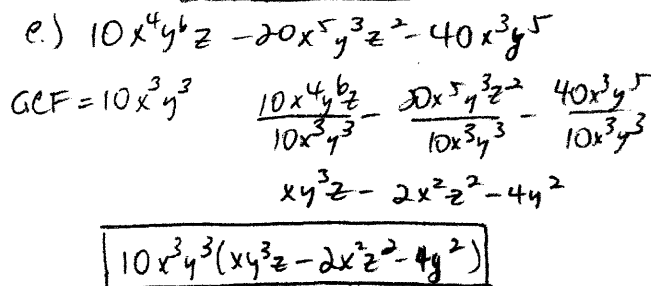 e.) 10x⁴y⁶z - 20x⁵y³z² - 40x³y⁵
GCF = 10x³y³ 10x⁴y⁶z/10x³y³ - 20x⁵y³z²/10x³y³ - 40x³y⁵/10x³y³
xy³z - 2x²z² - 4y²
10x³y³(xy³z - 2x²z² - 4y²)